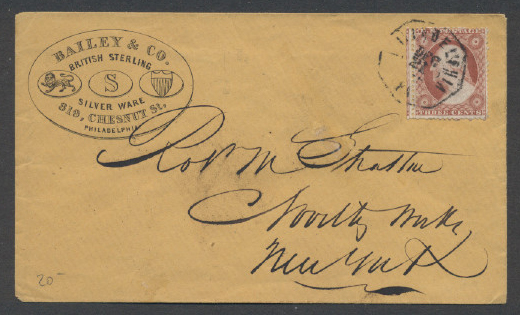 BAILEY & CO.
BRITISH STERLING
S
SILVER WARE
819, CHESNUT St.
PHILADELPHIA
THREE CENTS
Robt M Stratton
Novelty Works
New York
20-